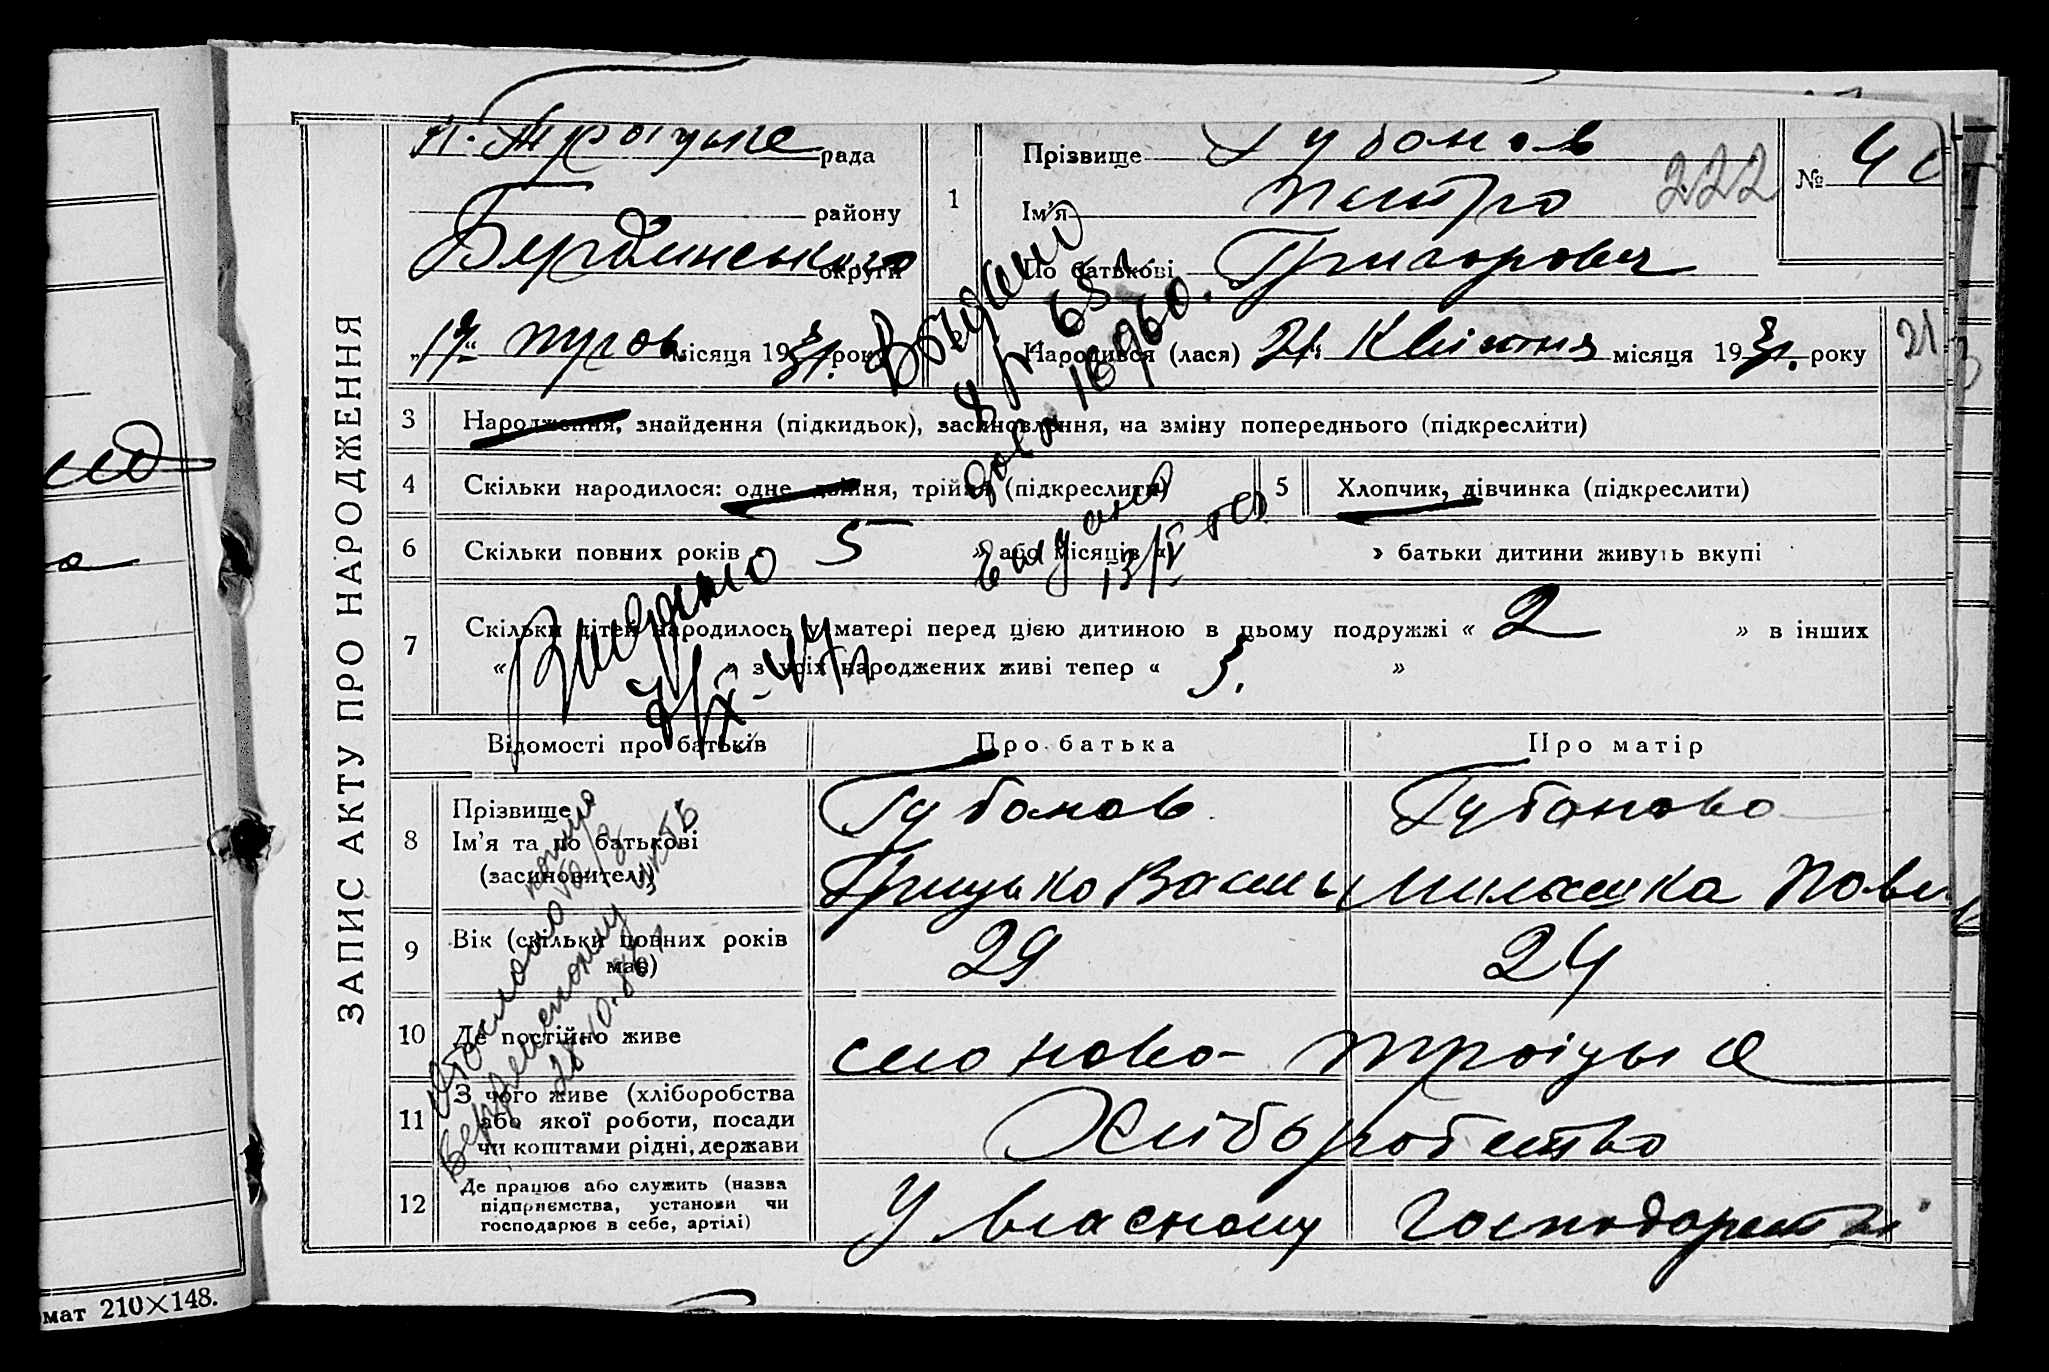 ЗАПИС АКТУ ПРО НАРОДЖЕННЯ
н. Троіцьке рада
району
Бердянського округи
1
Прізвище Губонов
222
Ім'я Петро
По батькові Григорович
№ 40
місяця 1931. року
Народився (лася) 21 Квітня місяця 1931. року
21
3 Народження, знайдення (підкидьок), засиновлення, на зміну попереднього (підкреслити)
4 Скільки народилося: одне, двійня, трійня (підкреслити)
5 Хлопчик, дівчинка (підкреслити)
6 Скільки повних років 5 » або місяців « » батьки дитини живуть вкупі
7 Скільки дітей народилось у матері перед цією дитиною в цьому подружжі « 2 » в інших
« » з усіх народжених живі тепер « 3. »
Відомості про батьків
Про батька
Про матір
8 Прізвище
Ім'я та по батькові
(засиновителі)
Губонов
Грицько
Губонова
9 Вік (скільки повних років має)
29
24
10 Де постійно живе
село Ново-Троіцьке
11 З чого живе (хліборобства або якої роботи, посади чи коштами рідні, держави
Хліборобство
12 Де працює або служить (назва підприємства, установи чи господарює в себе, артілі)
У власному господарстві
мат 210×148.